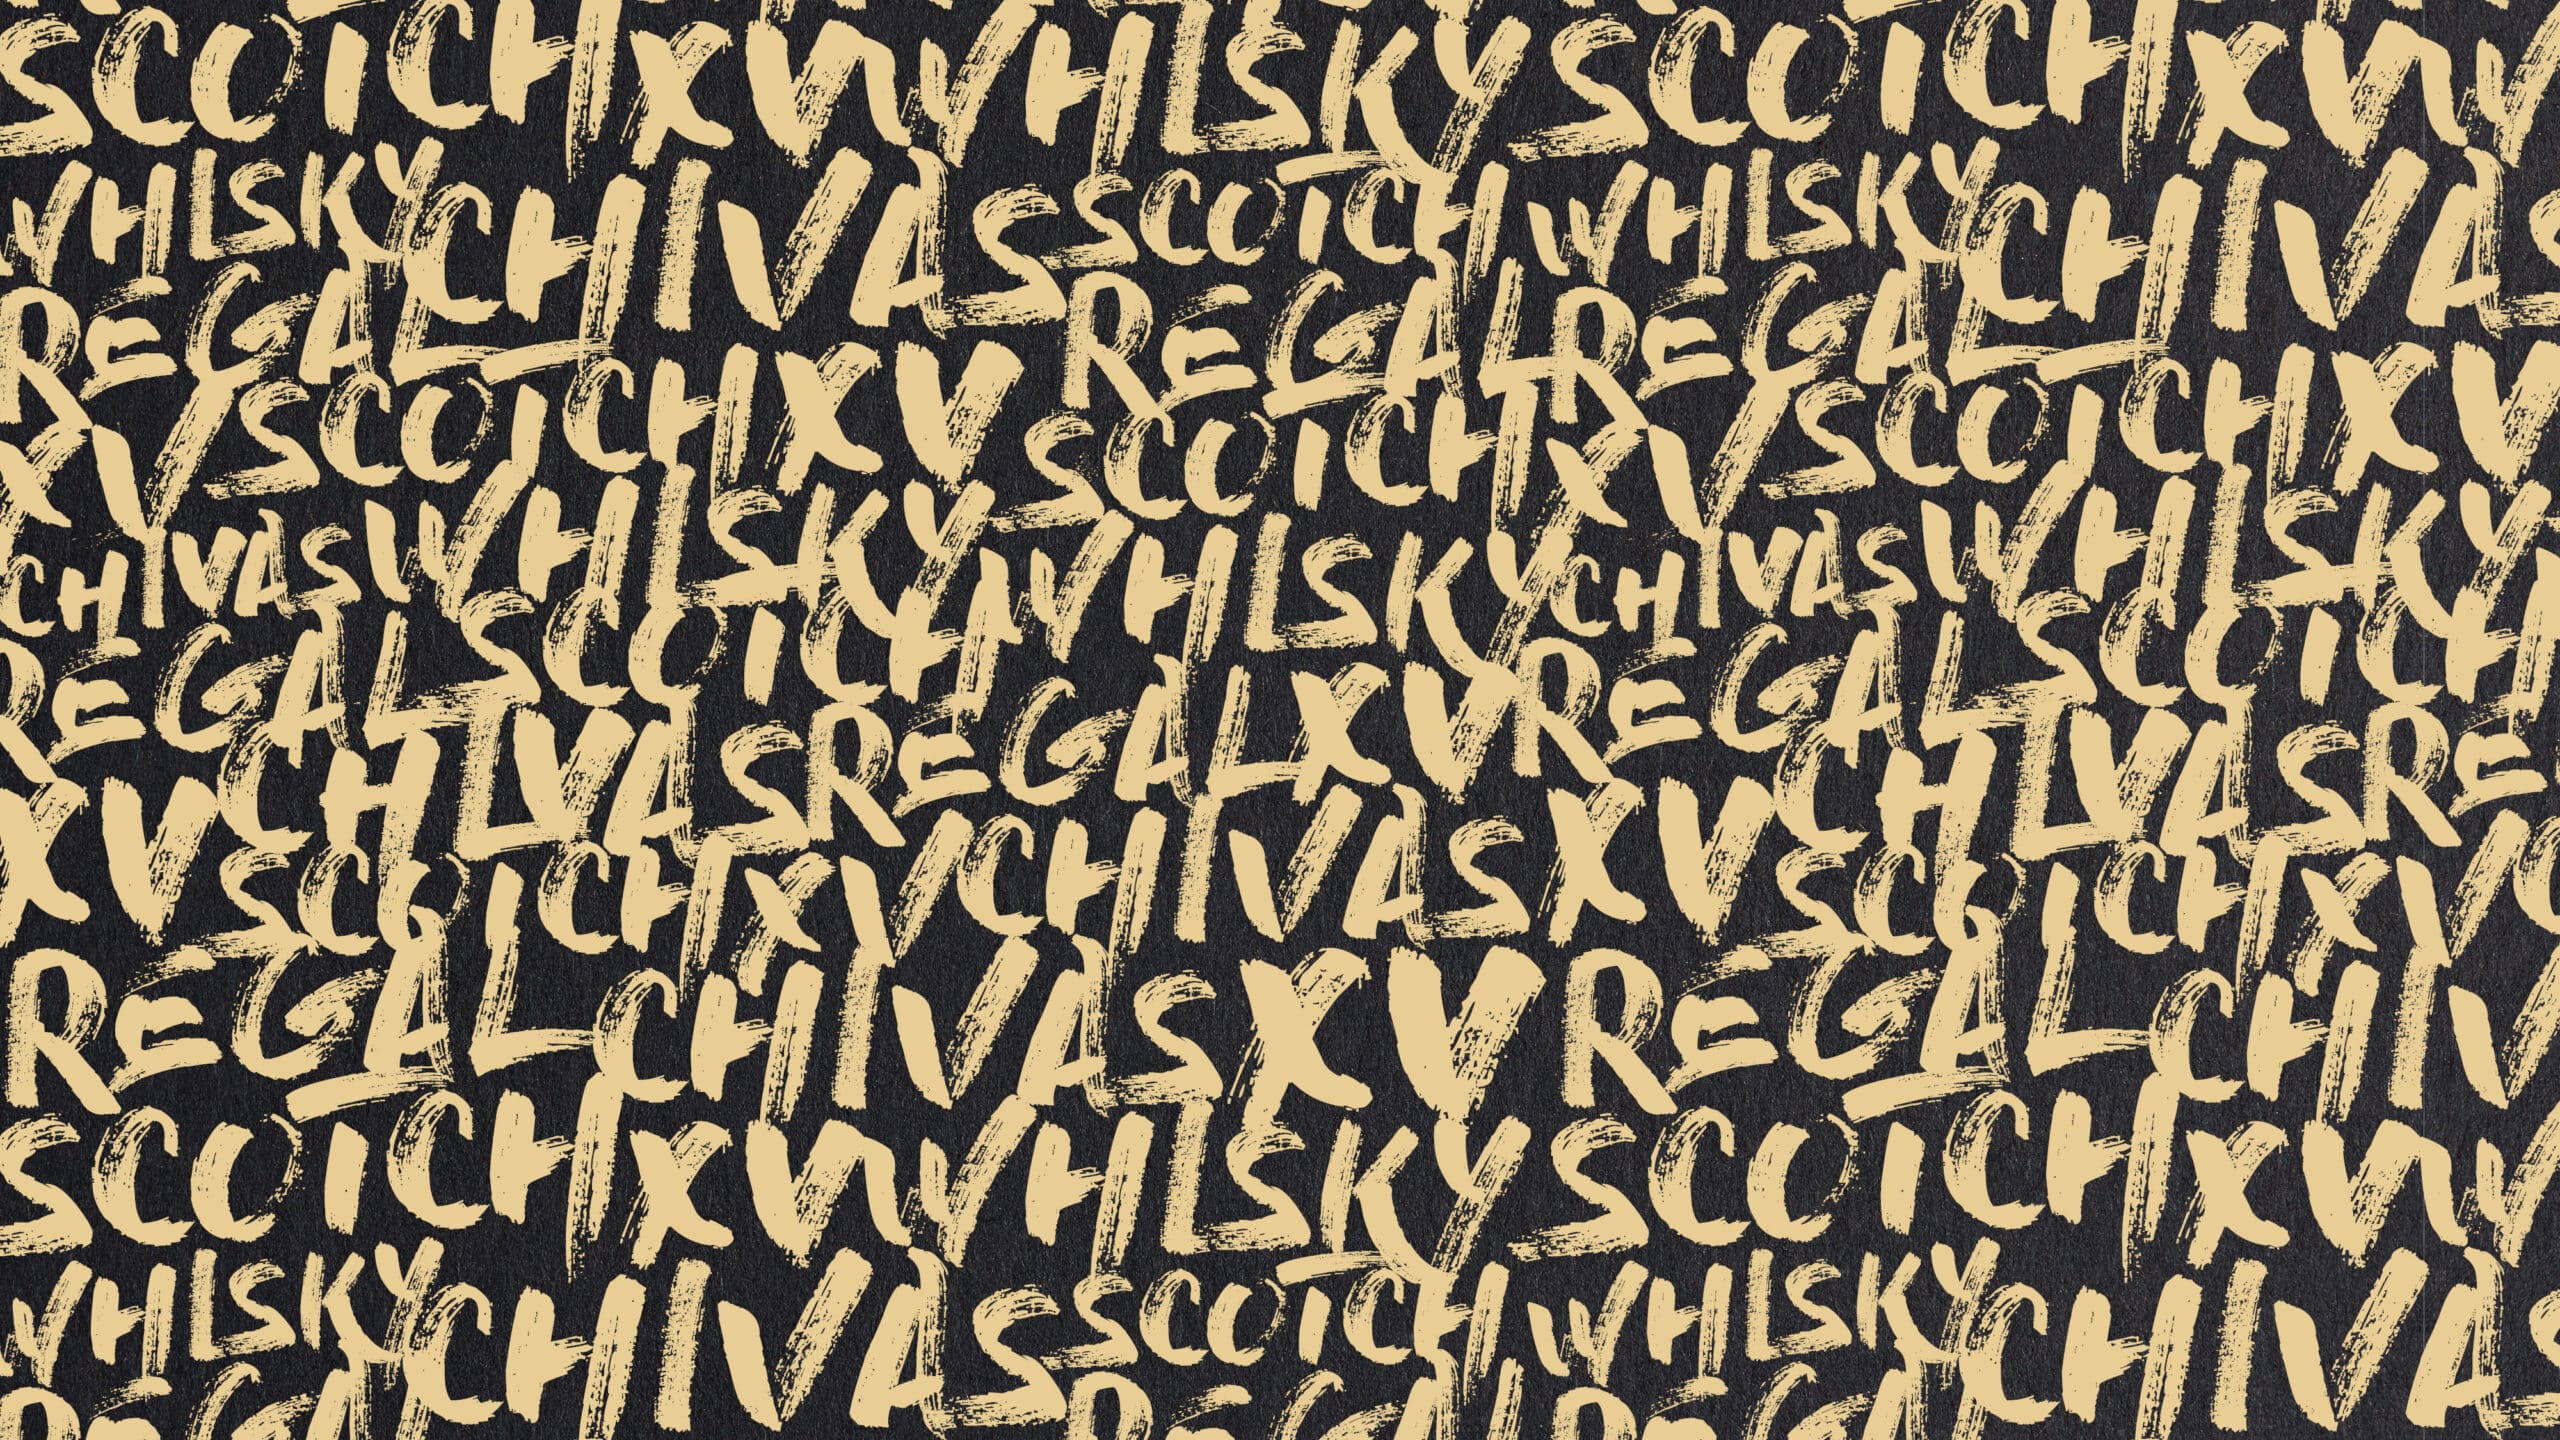 SCOTCH XV WHISKY SCOTCH XV
WHISKY CHIVAS SCOTCH WHISKY CHIVAS
REGAL REGAL REGAL
XV SCOTCH XV SCOTCH XV SCOTCH XV
CHIVAS WHISKY WHISKY CHIVAS WHISKY
REGAL SCOTCH REGAL XV REGAL SCOTCH
XV CHIVAS REGAL CHIVAS XV CHIVAS RE
SCOTCH XV CHIVAS SCOTCH XV
REGAL CHIVAS XV REGAL CHIV
SCOTCH XV WHISKY SCOTCH XV
WHISKY CHIVAS SCOTCH WHISKY CHIVAS
REGAL REGAL REGAL